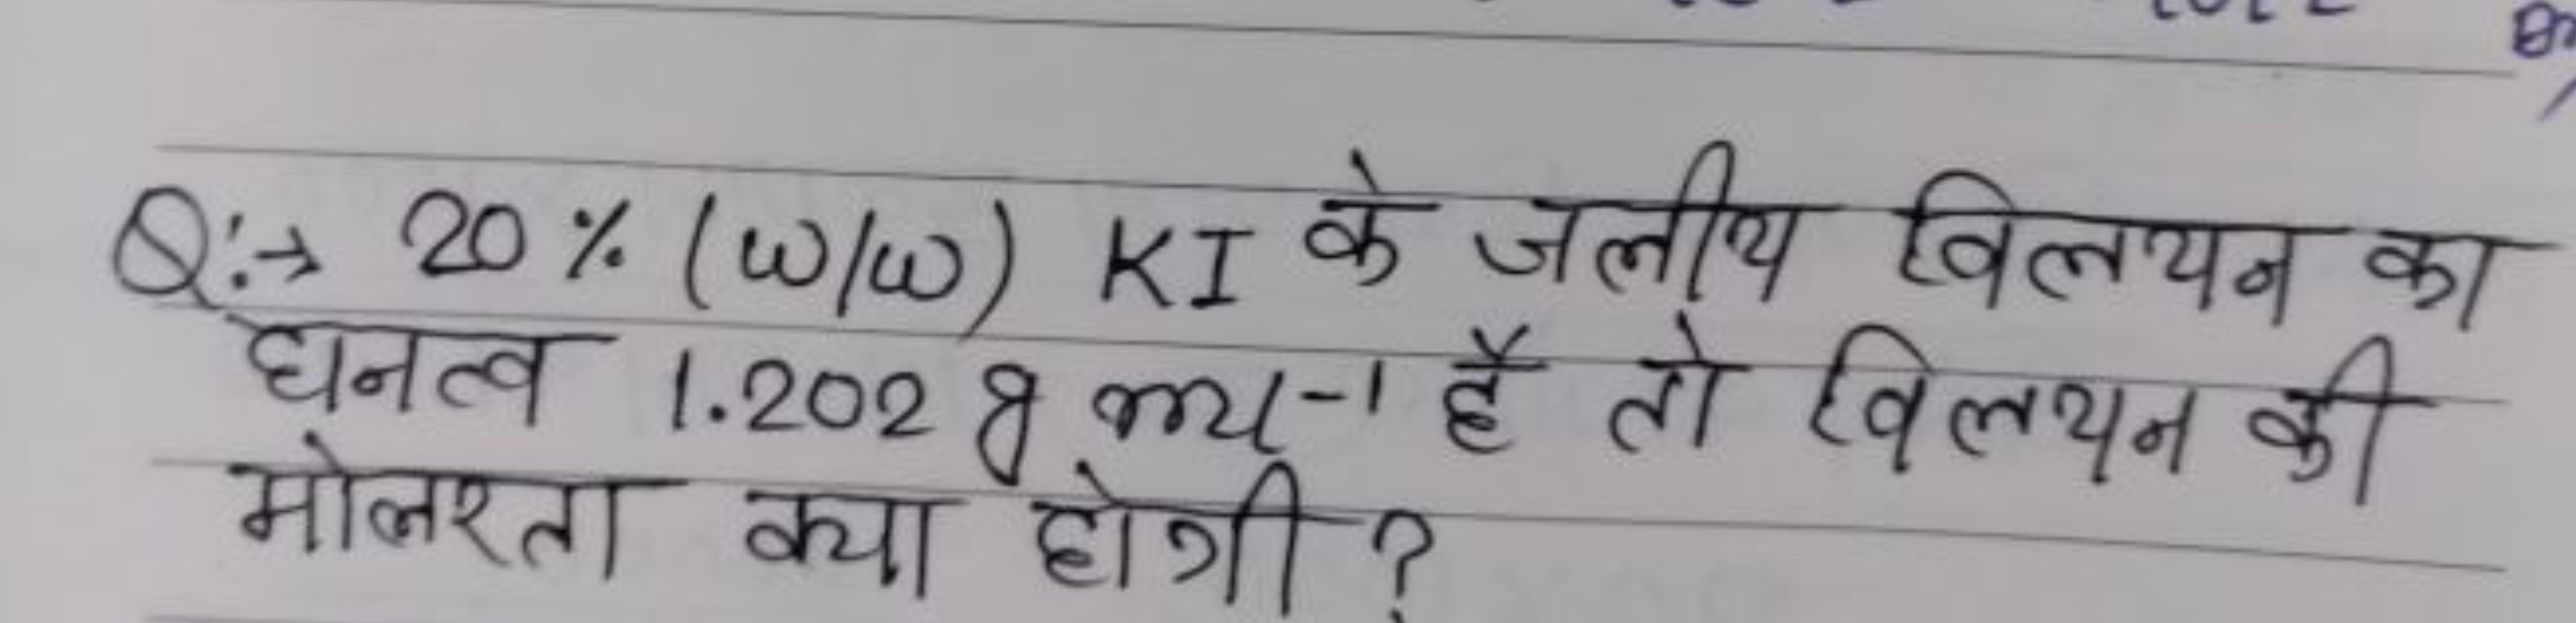 Q:→ 20 % (w/w) KI के जलीय विलयन का
घनत्व 1.202 g mL-1 है तो विलयन की
मोलरता क्या होगी ?